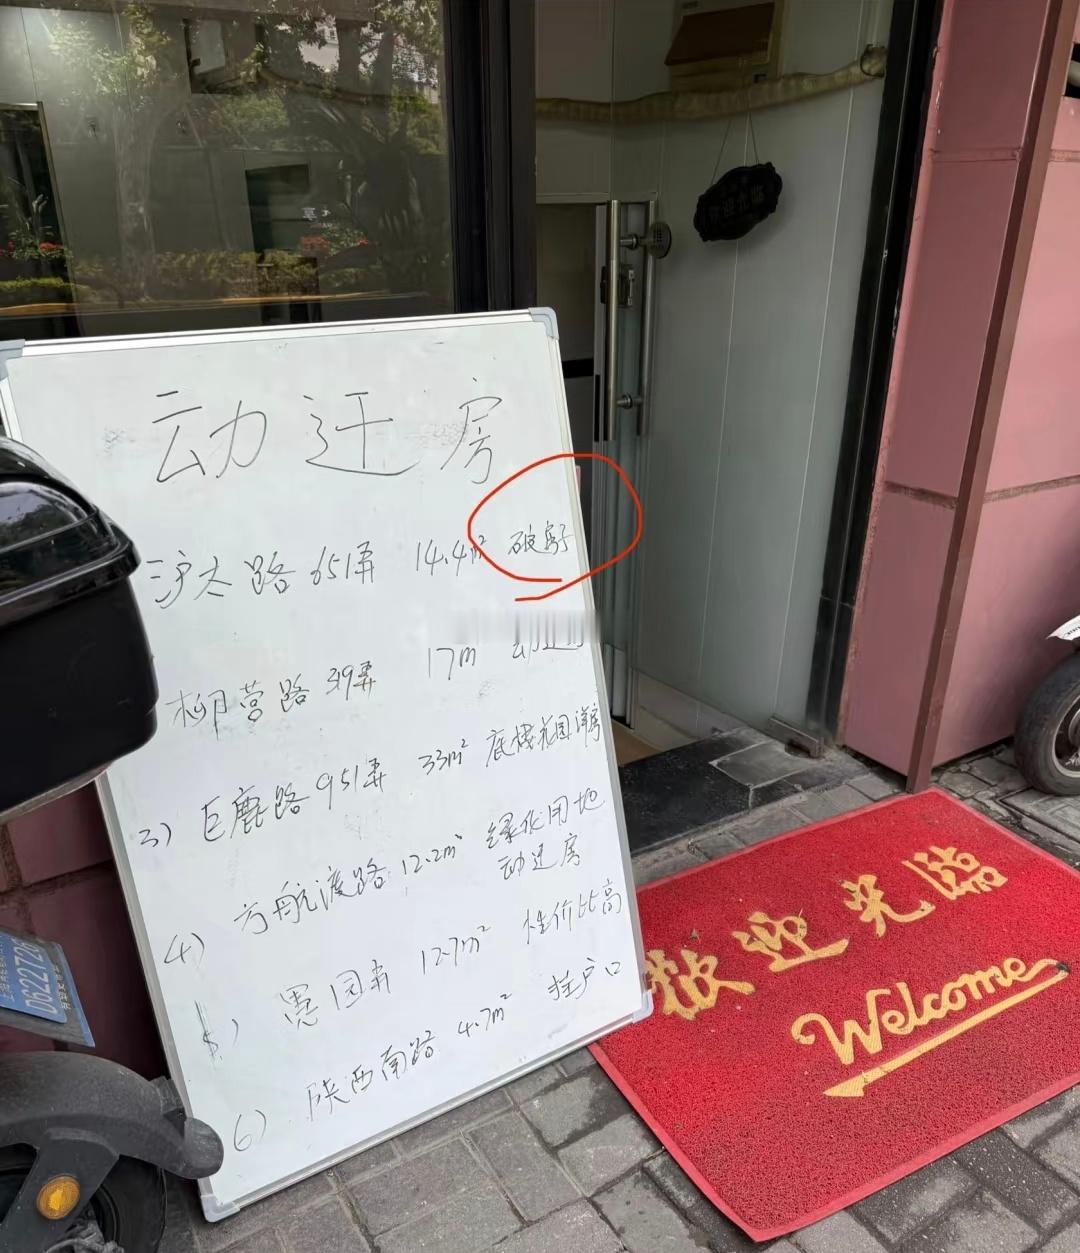 动迁房
沪太路651弄 14.4m² 破房子
柳营路39弄 17m 动迁房
3) 巨鹿路951弄 33m² 底楼花园洋房
4) 万航渡路 12.2m² 绿化用地
动迁房
5) 愚园弄 12.7m² 性价比高
6) 陕西南路 4.7m² 挂户口
欢迎光临
歡迎光臨
Welcome
0622726